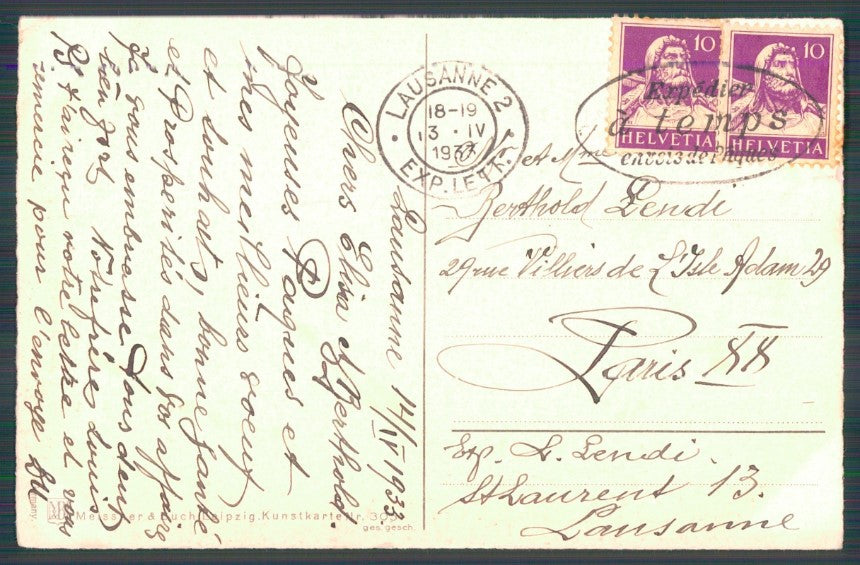 Lausanne 14/IV 1933.
Chers Elisa et Berthold.
Joyeuses Pâques et
mes meilleurs voeux
et souhaits, bonne santé
et Prosperités dans vos affaires
Je vous embrasse tous deux
bien fort Notre frère Louis
J'ai reçu votre lettre et vous
remercie pour l'envoye
LAUSANNE 2
18-19
13. IV
1933
EXP. LETT.
10
HELVETIA
10
HELVETIA
Expédier
à temps
envois de Pâques
Mr et Mme
Berthold Lendi
29 rue Villiers de L'Isle Adam 29
Paris XX
Exp. L. Lendi.
St Laurent 13.
Lausanne
Meissner & Buch Leipzig. Kunstkarte Nr.
ges. gesch.